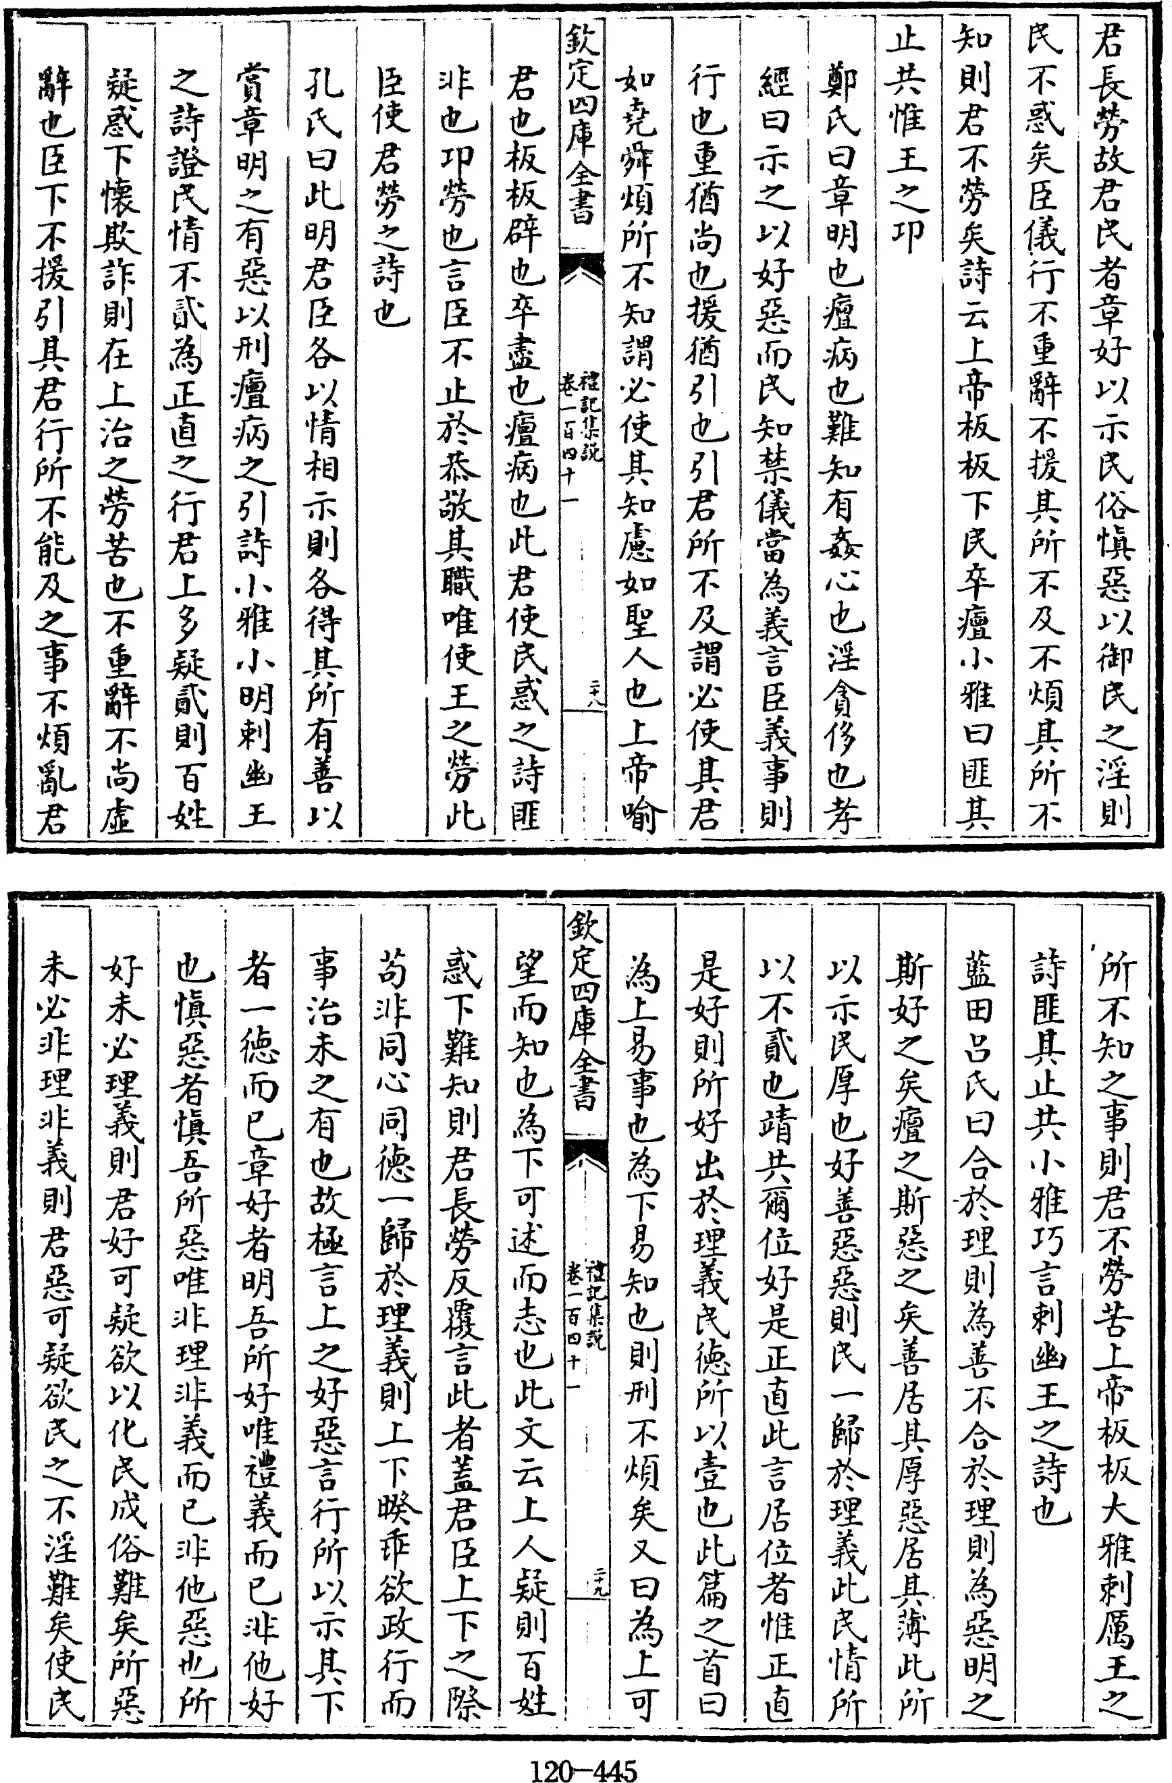 君長勞故君民者章好以示民俗慎惡以御民之淫則
民不惑矣臣儀行不重辭不援其所不及不煩其所不
知則君不勞矣詩云上帝板板下民卒癉小雅曰匪其
止共惟王之卭
鄭氏曰章明也癉病也難知有姦心也淫貪侈也孝
經曰示之以好惡而民知禁儀當為義言臣義事則
行也重猶尚也援猶引也引君所不及謂必使其君
如堯舜煩所不知謂必使其知慮如聖人也上帝喻
欽定四庫全書
禮記集説
卷一百四十一
二十八
君也板板辟也卒盡也癉病也此君使民惑之詩匪
非也卭勞也言臣不止於恭敬其職唯使王之勞此
臣使君勞之詩也
孔氏曰此明君臣各以情相示則各得其所有善以
賞章明之有惡以刑癉病之引詩小雅小明刺幽王
之詩證民情不貳為正直之行君上多疑貳則百姓
疑惑下懷欺詐則在上治之勞苦也不重辭不尚虛
辭也臣下不援引其君行所不能及之事不煩亂君
所不知之事則君不勞苦上帝板板大雅刺厲王之
詩匪其止共小雅巧言刺幽王之詩也
藍田呂氏曰合於理則為善不合於理則為惡明之
斯好之矣癉之斯惡之矣善居其厚惡居其薄此所
以示民厚也好善惡惡則民一歸於理義此民情所
以不貳也靖共爾位好是正直此言居位者惟正直
是好則所好出於理義民德所以壹也此篇之首曰
為上易事也為下易知也則刑不煩矣又曰為上可
欽定四庫全書
禮記集説
卷一百四十一
二十九
望而知也為下可述而志也此文云上人疑則百姓
惑下難知則君長勞反覆言此者蓋君臣上下之際
苟非同心同德一歸於理義則上下暌乖欲政行而
事治未之有也故極言上之好惡言行所以示其下
者一德而已章好者明吾所好唯禮義而已非他好
也慎惡者慎吾所惡唯非理非義而已非他惡也所
好未必理義則君好可疑欲以化民成俗難矣所惡
未必非理非義則君惡可疑欲民之不淫難矣使民
120-445